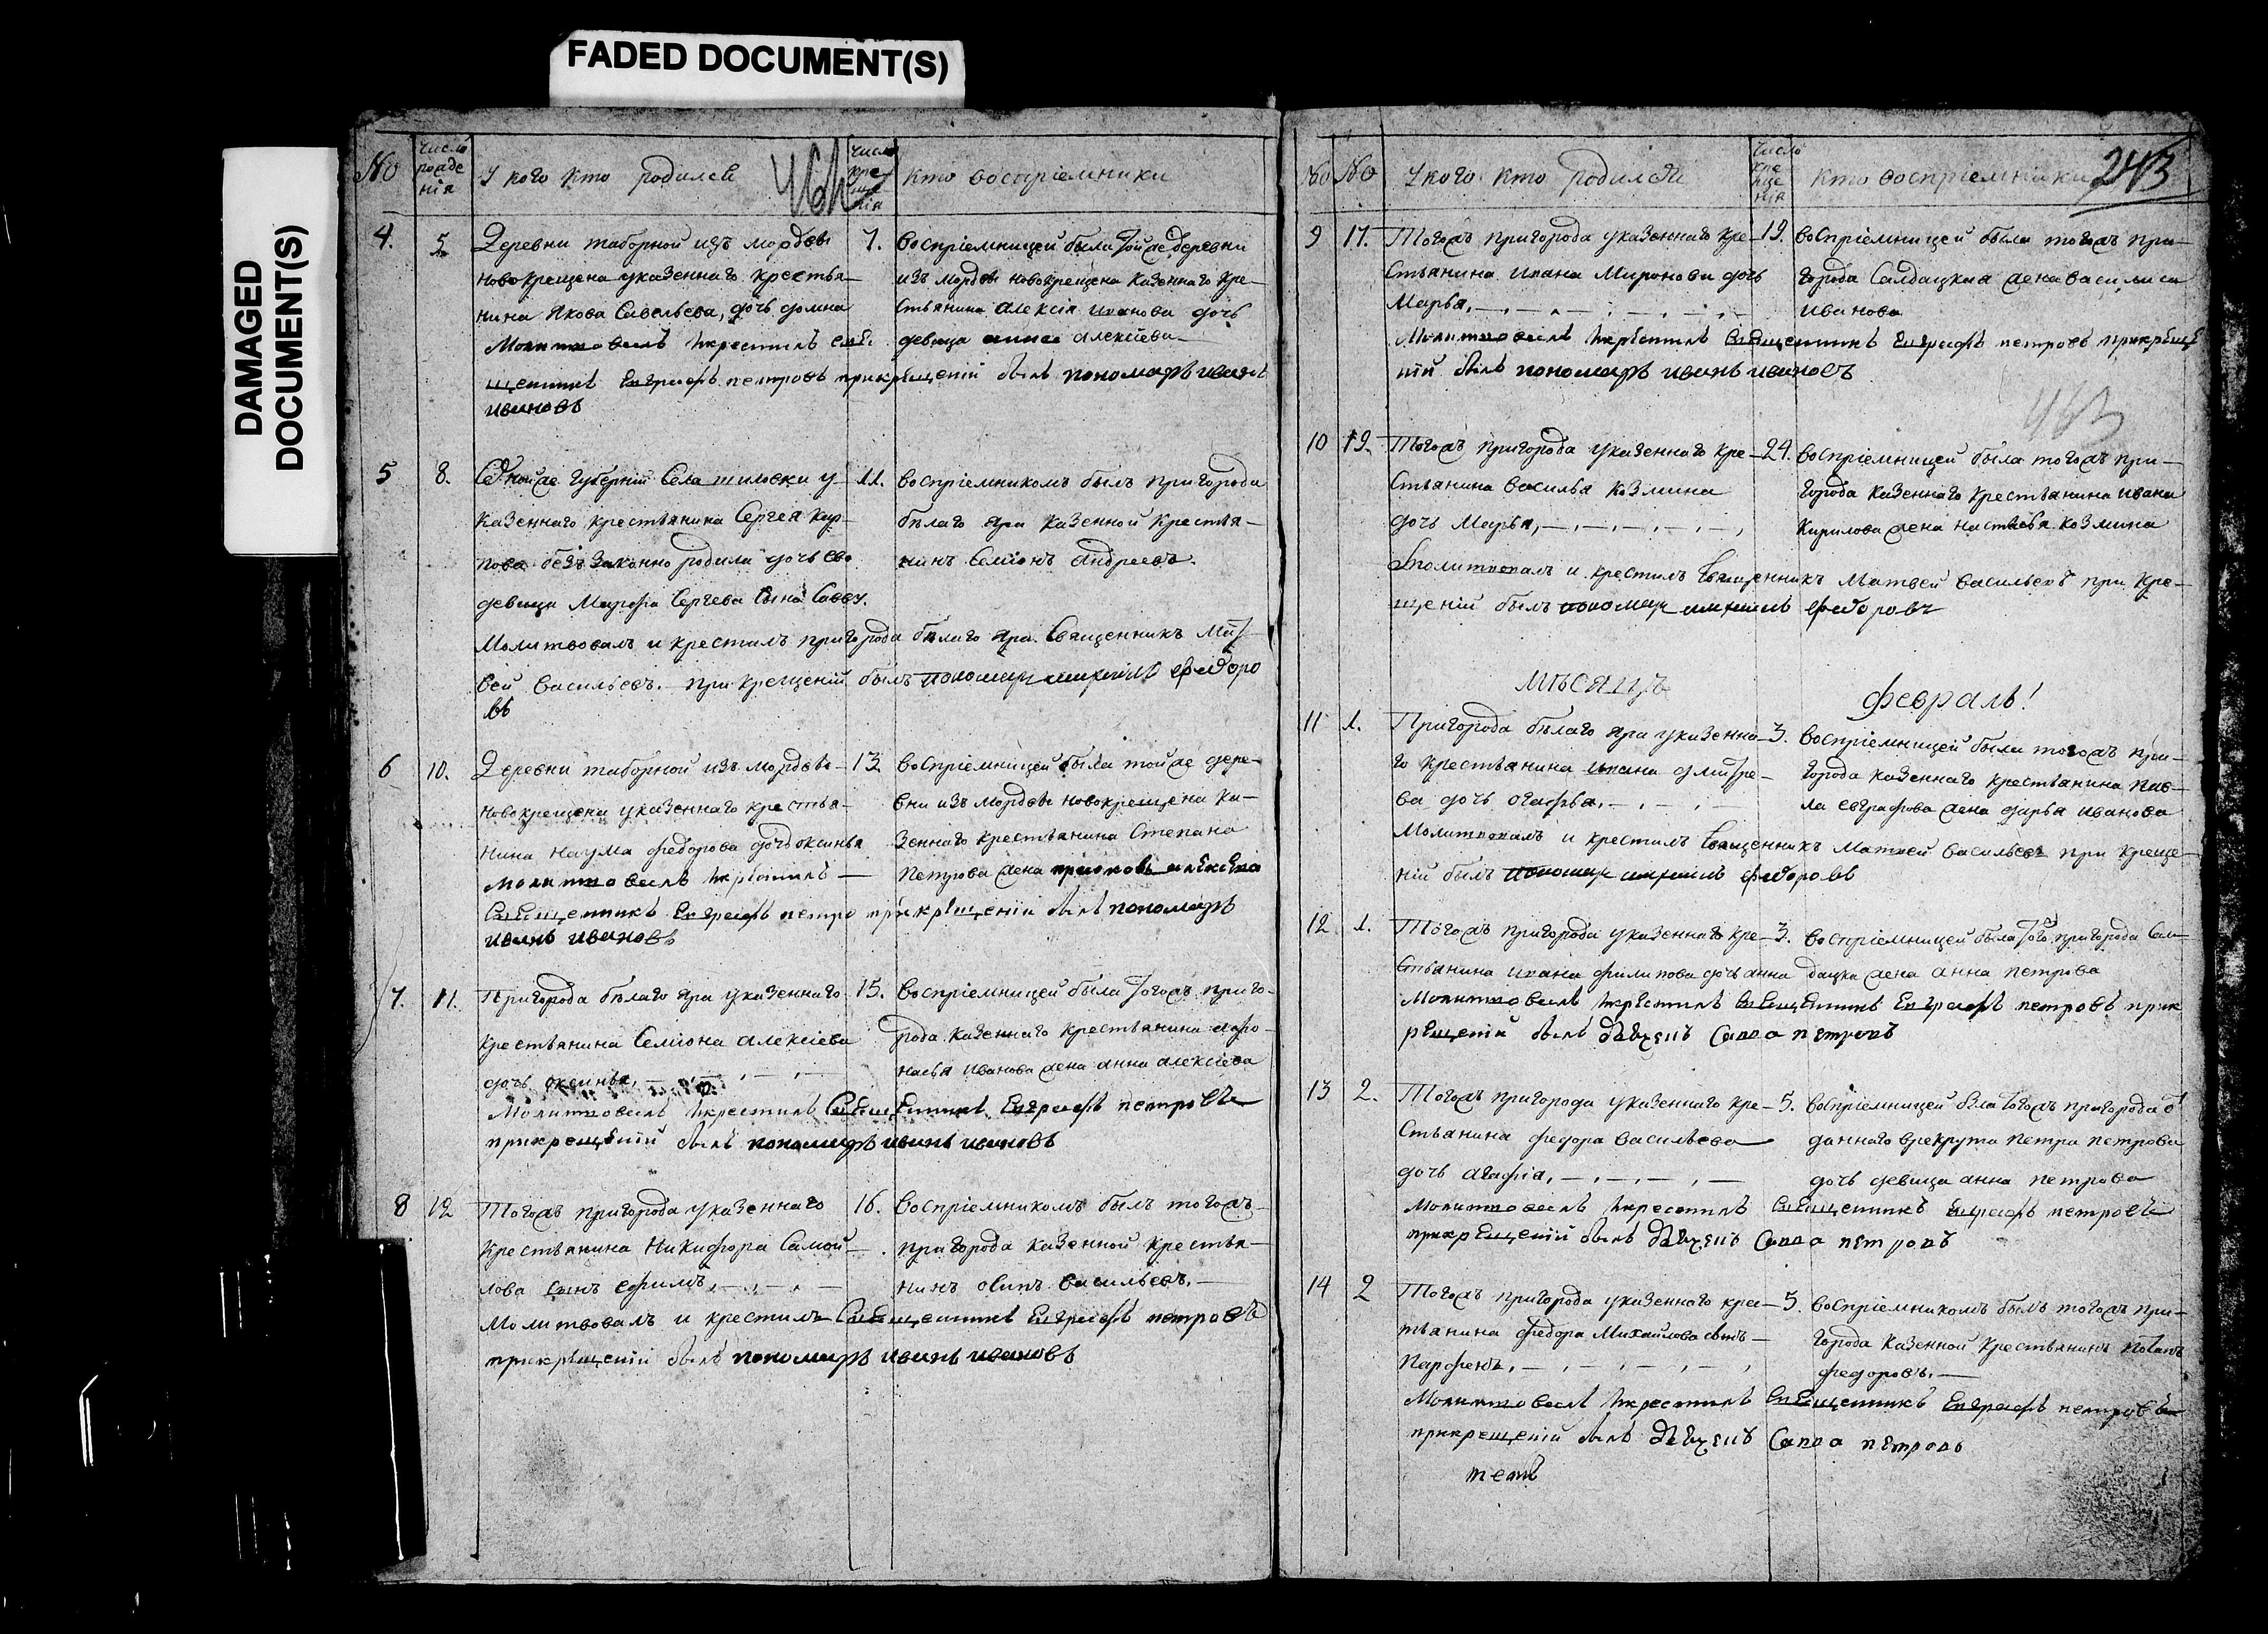 FADED DOCUMENT(S)
DAMAGED
DOCUMENT(S)
№
число
рожде
нія
У кого кто родился
число
кре
ще
нія
кто воспріемники
4.
5
Деревни таборной изъ мордвы
новокрещена указеннаго крестья-
нина Якова Савельева, дочь домна
Молитвовалъ икрестилъ свя
щенникъ Евграфъ петровъ прикрещеніи былъ пономарь иванъ
ивановъ
7.
воспріемницей была тойже деревни
изъ мордвы новокрещена казеннаго кре-
стьянина алексія иванова дочь
девица анна алексіева
5
8.
губерніи Села шиловки у-
казеннаго крестьянина Сергея кар-
пова беззаконно родила дочь ево
девица Марфа Сергева сына Савву.
Молитвовалъ и крестилъ пригорода белаго яра Священникъ Мат
вей васильевъ. при крещеніи былъ пономарь федоро
въ
11.
воспріемникомъ былъ пригорода
белаго яра казенной крестья-
нинъ Семіонъ андреевъ.
6
10.
Деревни таборной изъ мордвы-
новокрещена указеннаго крестья-
нина наума федорова дочь оксинья
Молитвовалъ икрестилъ
Священникъ Евграфъ петро прикрещеніи былъ пономарь
иванъ ивановъ
13
воспріемницей была тойже дере-
вни изъ мордвы новокрещена ка-
зеннаго крестьянина Степана
петрова жена
7.
11.
Пригорода белаго яра указеннаго
крестьянина Семіона алексіева
дочь оксинья,
Молитвовалъ икрестилъ Священникъ Евграфъ петровъ
прикрещеніи былъ пономарь иванъ ивановъ
15.
воспріемницей была тогожъ приго-
рода казеннаго крестьянина афо-
насья иванова жена анна алексіева
8
12
Тогожъ пригорода указеннаго
крестьянина Никифора Самой-
лова сынъ ефимъ,
Молитвовалъ и крестилъ Священникъ Евграфъ петровъ
прикрещеніи былъ пономарь иванъ ивановъ
16.
воспріемникомъ былъ тогожъ
пригорода казенной крестья-
нинъ осипъ васильевъ.
№ №
У кого кто родился
число
кре
ще
нія
кто воспріемники
243
9
17.
Тогожъ пригорода указеннаго кре-
стьянина ивана Миронова дочь
Марья,
Молитвовалъ икрестилъ Священникъ Евграфъ петровъ прикреще
ніи былъ пономарь иванъ ивановъ
19.
воспріемницей была тогожъ при-
города Салдацкая жена василиса
иванова
463
10
19.
Тогожъ пригорода указеннаго кре-
стьянина василья козмина
дочь Марья,
Молитвовалъ и крестилъ Священникъ Матвей васильевъ при кре-
щеніи былъ пономарь федоровъ
24.
воспріемницей была тогожъ при-
города казеннаго крестьянина ивана
Кирилова жена настасья козмина
месяцъ
февраль!
11
1.
Пригорода белаго яра указенна-
го крестьянина ивана дмитре-
ва дочь агафья.
Молитвовалъ и крестилъ Священникъ Матвей васильевъ при креще-
ніи былъ пономарь федоровъ
3.
воспріемницей была тогожъ при-
города казеннаго крестьянина пав-
ла евграфова жена дарья иванова
12
1.
Тогожъ пригорода указеннаго кре-
стьянина ивана филипова дочь анна
Молитвовалъ икрестилъ Священникъ Евграфъ петровъ прик
рещеніи былъ дьячекъ Савва петровъ
3.
воспріемницей была того пригорода Сал-
дацка жена анна петрова
13
2.
Тогожъ пригорода указеннаго кре-
стьянина федора васильева
дочь агафіа,
Молитвовалъ икрестилъ Священникъ Евграфъ петровъ
прикрещеніи былъ дьячекъ Савва петровъ
5.
воспріемницей была тогожъ пригорода о
даннаго врекруты петра петрова
дочь девица анна петрова
14
2
Тогожъ пригорода указеннаго крес-
тьянина федора Михайлова сынъ
Парфенъ,
Молитвовалъ икрестилъ Священникъ Евграфъ петровъ
прикрещеніи былъ дьячекъ Савва петровъ
5.
воспріемникомъ былъ тогожъ при-
города казенной крестьянинъ потапъ
федоровъ.